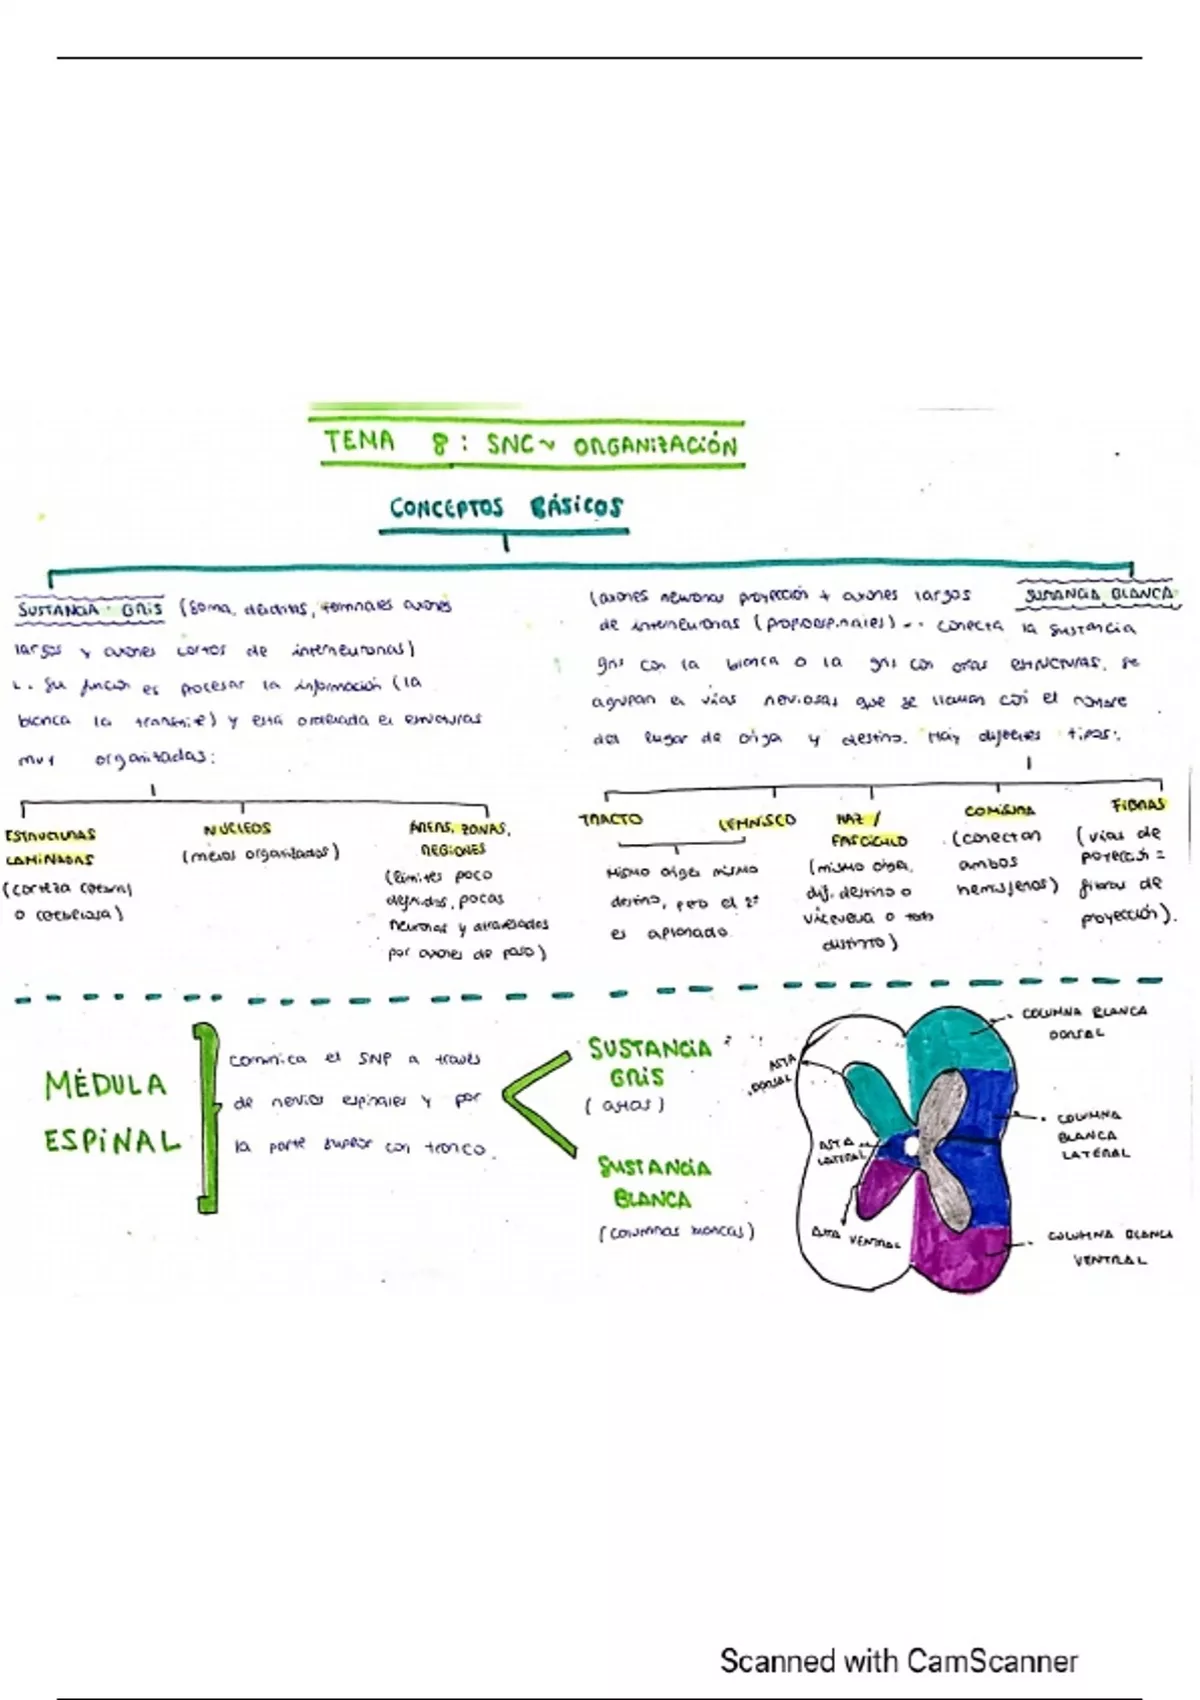 TEMA 8: SNC~ ORGANIZACIÓN
CONCEPTOS BÁSICOS
SUSTANCIA GRIS (Soma, dendritas, terminales axones
largos y axones cortos de interneuronas)
Su función es procesar la información (la
blanca la transmite) y está ordenada en estructuras
muy organizadas:
ESTRUCTURAS
LAMINADAS
(corteza cerebral
o cerebelosa)
NUCLEOS
(menos organizados)
ÁREAS, ZONAS,
REGIONES
(límites poco
definidos, pocas
neuronas y atravesados
por axones de paso)
SUSTANCIA BLANCA
(axones neuronas proyección + axones largos
de interneuronas (propioespinales) -- conecta la sustancia
gris con la blanca o la gris con otras estructuras. Se
agrupan en vías nerviosas que se llaman con el nombre
del lugar de origen y destino. Hay diferentes tipos:
TRACTO
LEMNISCO
Mismo origen mismo
destino, pero el 2º
es aplanado
HAZ /
FASCÍCULO
(mismo origen,
dif. destino o
viceversa o todo
distinto)
COMISURA
(conectan
ambos
hemisferios)
FIBRAS
(vías de
proyección =
fibras de
proyección).
MÉDULA
ESPINAL
comunica el SNP a través
de nervios espinales y por
la parte superior con tronco.
SUSTANCIA
GRIS
(astas)
SUSTANCIA
BLANCA
(columnas blancas)
ASTA
DORSAL
ASTA
LATERAL
ASTA VENTRAL
COLUMNA BLANCA
DORSAL
COLUMNA
BLANCA
LATERAL
COLUMNA BLANCA
VENTRAL
Scanned with CamScanner